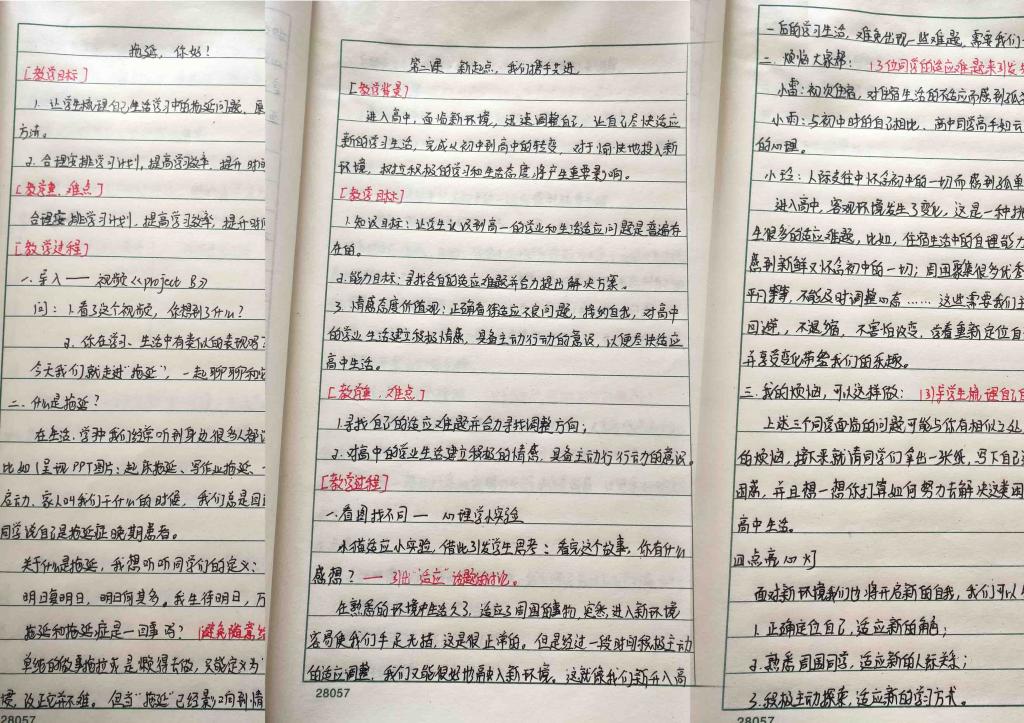 拖延，你好！
[教学目标]
1. 让学生梳理自己生活学习中的拖延问题、
方法。
2. 合理安排学习计划，提高学习效率，提升时间
[教学重、难点]
合理安排学习计划，提高学习效率，提升时间
[教学过程]
一. 导入——视频《project B》
问：1.看了这个视频，你想到了什么？
2. 你在学习、生活中有类似的表现吗？
今天我们就走进“拖延”，一起聊聊和
二. 什么是拖延？
在生活、学习中我们经常听到身边很多人都
比如（呈现PPT图片：起床拖延、写作业拖延、
启动、家人叫我们干什么的时候，我们总是回
同学说自己是拖延症晚期患者。
关于什么是拖延，我想听听同学们的定义：
明日复明日，明日何其多。我生待明日，万
拖延和拖延症是一回事吗？（避免随意给
单纯的做事拖拉或是懒得去做，又能定义为
惯，改正它并不难。但当“拖延”已经影响到情
28057
第二课 新起点，我们携手共进
[教学背景]
进入高中，面临新环境，迅速调整自己，让自己尽快适应
新的学习生活，完成从初中到高中的转变，对于愉快地投入新
环境，树立积极的学习和生活态度将产生重要影响。
[教学目标]
1.知识目标：让学生认识到高一的学业和生活适应问题是普遍存
在的。
2.能力目标：寻找各自的适应难题并合力提出解决方案。
3. 情感态度价值观：正确看待适应不良问题，接纳自我，对高中
的学业生活建立积极情感，具备主动行动的意识，以便尽快适应
高中生活。
[教学重、难点]
1.寻找自己的适应难题并合力寻找调整方向；
2. 对高中的学业生活建立积极的情感，具备主动行行动的意识。
[教学过程]
一.看图找不同——心理学小实验
小猫适应小实验，借此引发学生思考：看完这个故事，你有什么
感想？——引出“适应”话题的讨论。
在熟悉的环境中生活久了，适应了周围的事物，突然进入新环境
容易使我们手足无措，这是很正常的。但是经过一段时间积极主动
的适应调整，我们又能很好地融入新环境。这就像我们新升入高
28057
一后的学习生活，难免出现一些难题，需要我们一
二. 烦恼大家帮：（3位同学的适应难题来引发
小雷：初次住宿，对住宿生活的不适应而感到孤
小雨：与初中时的自己相比、高中同学高手如云
的心理。
小玲：人际交往中怀念初中的一切而感到孤单
进入高中，客观环境发生了变化，这是一种挑
生很多的适应难题，比如，住宿生活中的自理能力
感到新鲜又怀念初中的一切；周围聚集很多优秀
平门等等，不能及时调整心态……这些需要我们
回避，不退缩，不害怕改变，学着重新定位自
并享受变化带给我们的乐趣。
三.我的烦恼，可以这样做：（引导学生梳理自己
上述三个同学面临的问题可能与你有相似之处
的烦恼，接下来就请同学们拿出一张纸，写下自己
困惑，并且想一想你打算如何努力去解决这类困
高中生活。
四点亮心灯
面对新环境我们也将开启新的自我，我们可以
1.正确定位自己，适应新的角色；
2.熟悉周围同学，适应新的人际关系；
3.积极主动探索，适应新的学习方式。
28057